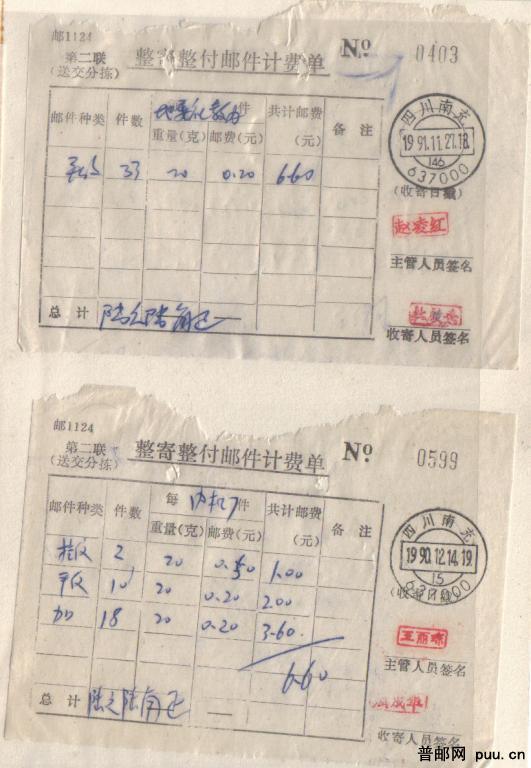 邮1124
第二联
(送交分拣)
整寄整付邮件计费单
No
0403
邮件种类 件数 件 共计邮费(元) 备注
重量(克) 邮费(元)
33 20 0.20 6.60
四川南充
1991.11.27.18
146
637000
(收寄日戳)
赵凌红
主管人员签名
总计 陆元陆角正
收寄人员签名
邮1124
第二联
(送交分拣)
整寄整付邮件计费单
No
0599
邮件种类 件数 每 件 共计邮费(元) 备注
重量(克) 邮费(元)
挂 2 20 0.50 1.00
平 10 20 0.20 2.00
18 20 0.20 3.60
6.60
四川南充
1990.12.14.19
15
637000
(收寄日戳)
王丽琼
主管人员签名
总计 陆元陆角正
收寄人员签名
普邮网 puu.cn